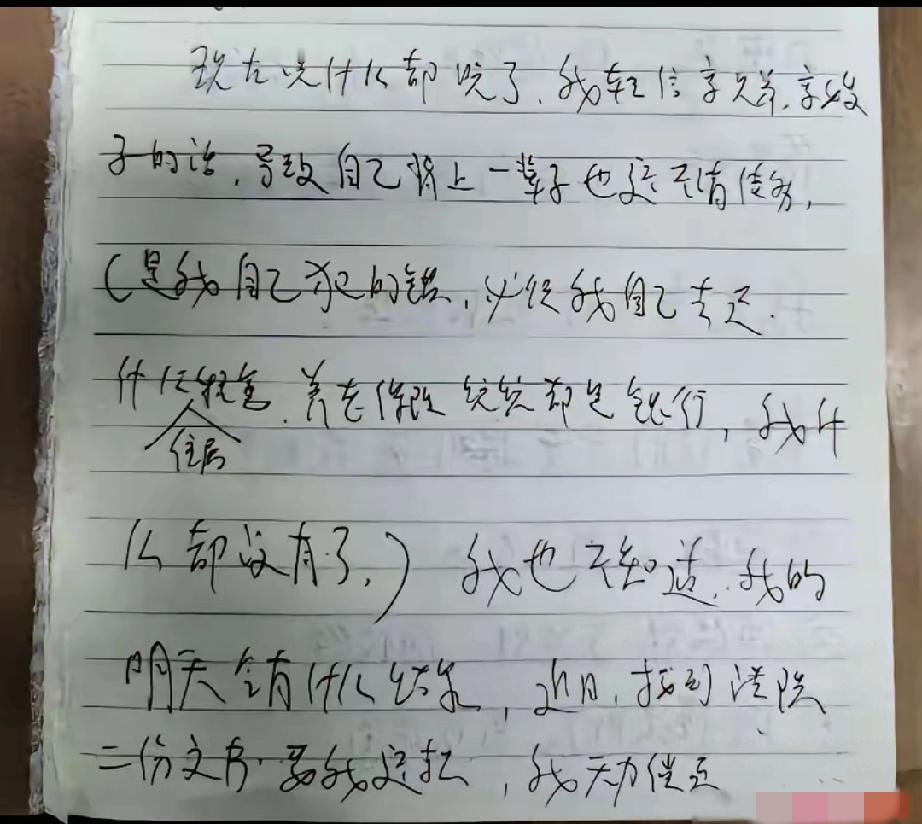 现在说什么都晚了,我轻信
子的话,导致自己背上一辈子也还不清债务,
(是我自己犯的错,必须我自己去还.
什么租金、养老保险统统都见行,我什
住房
么都没有了,)我也不知道,我的
明天会有什么结果,近日,接到法院
二份文书.要我还款,我无力偿还